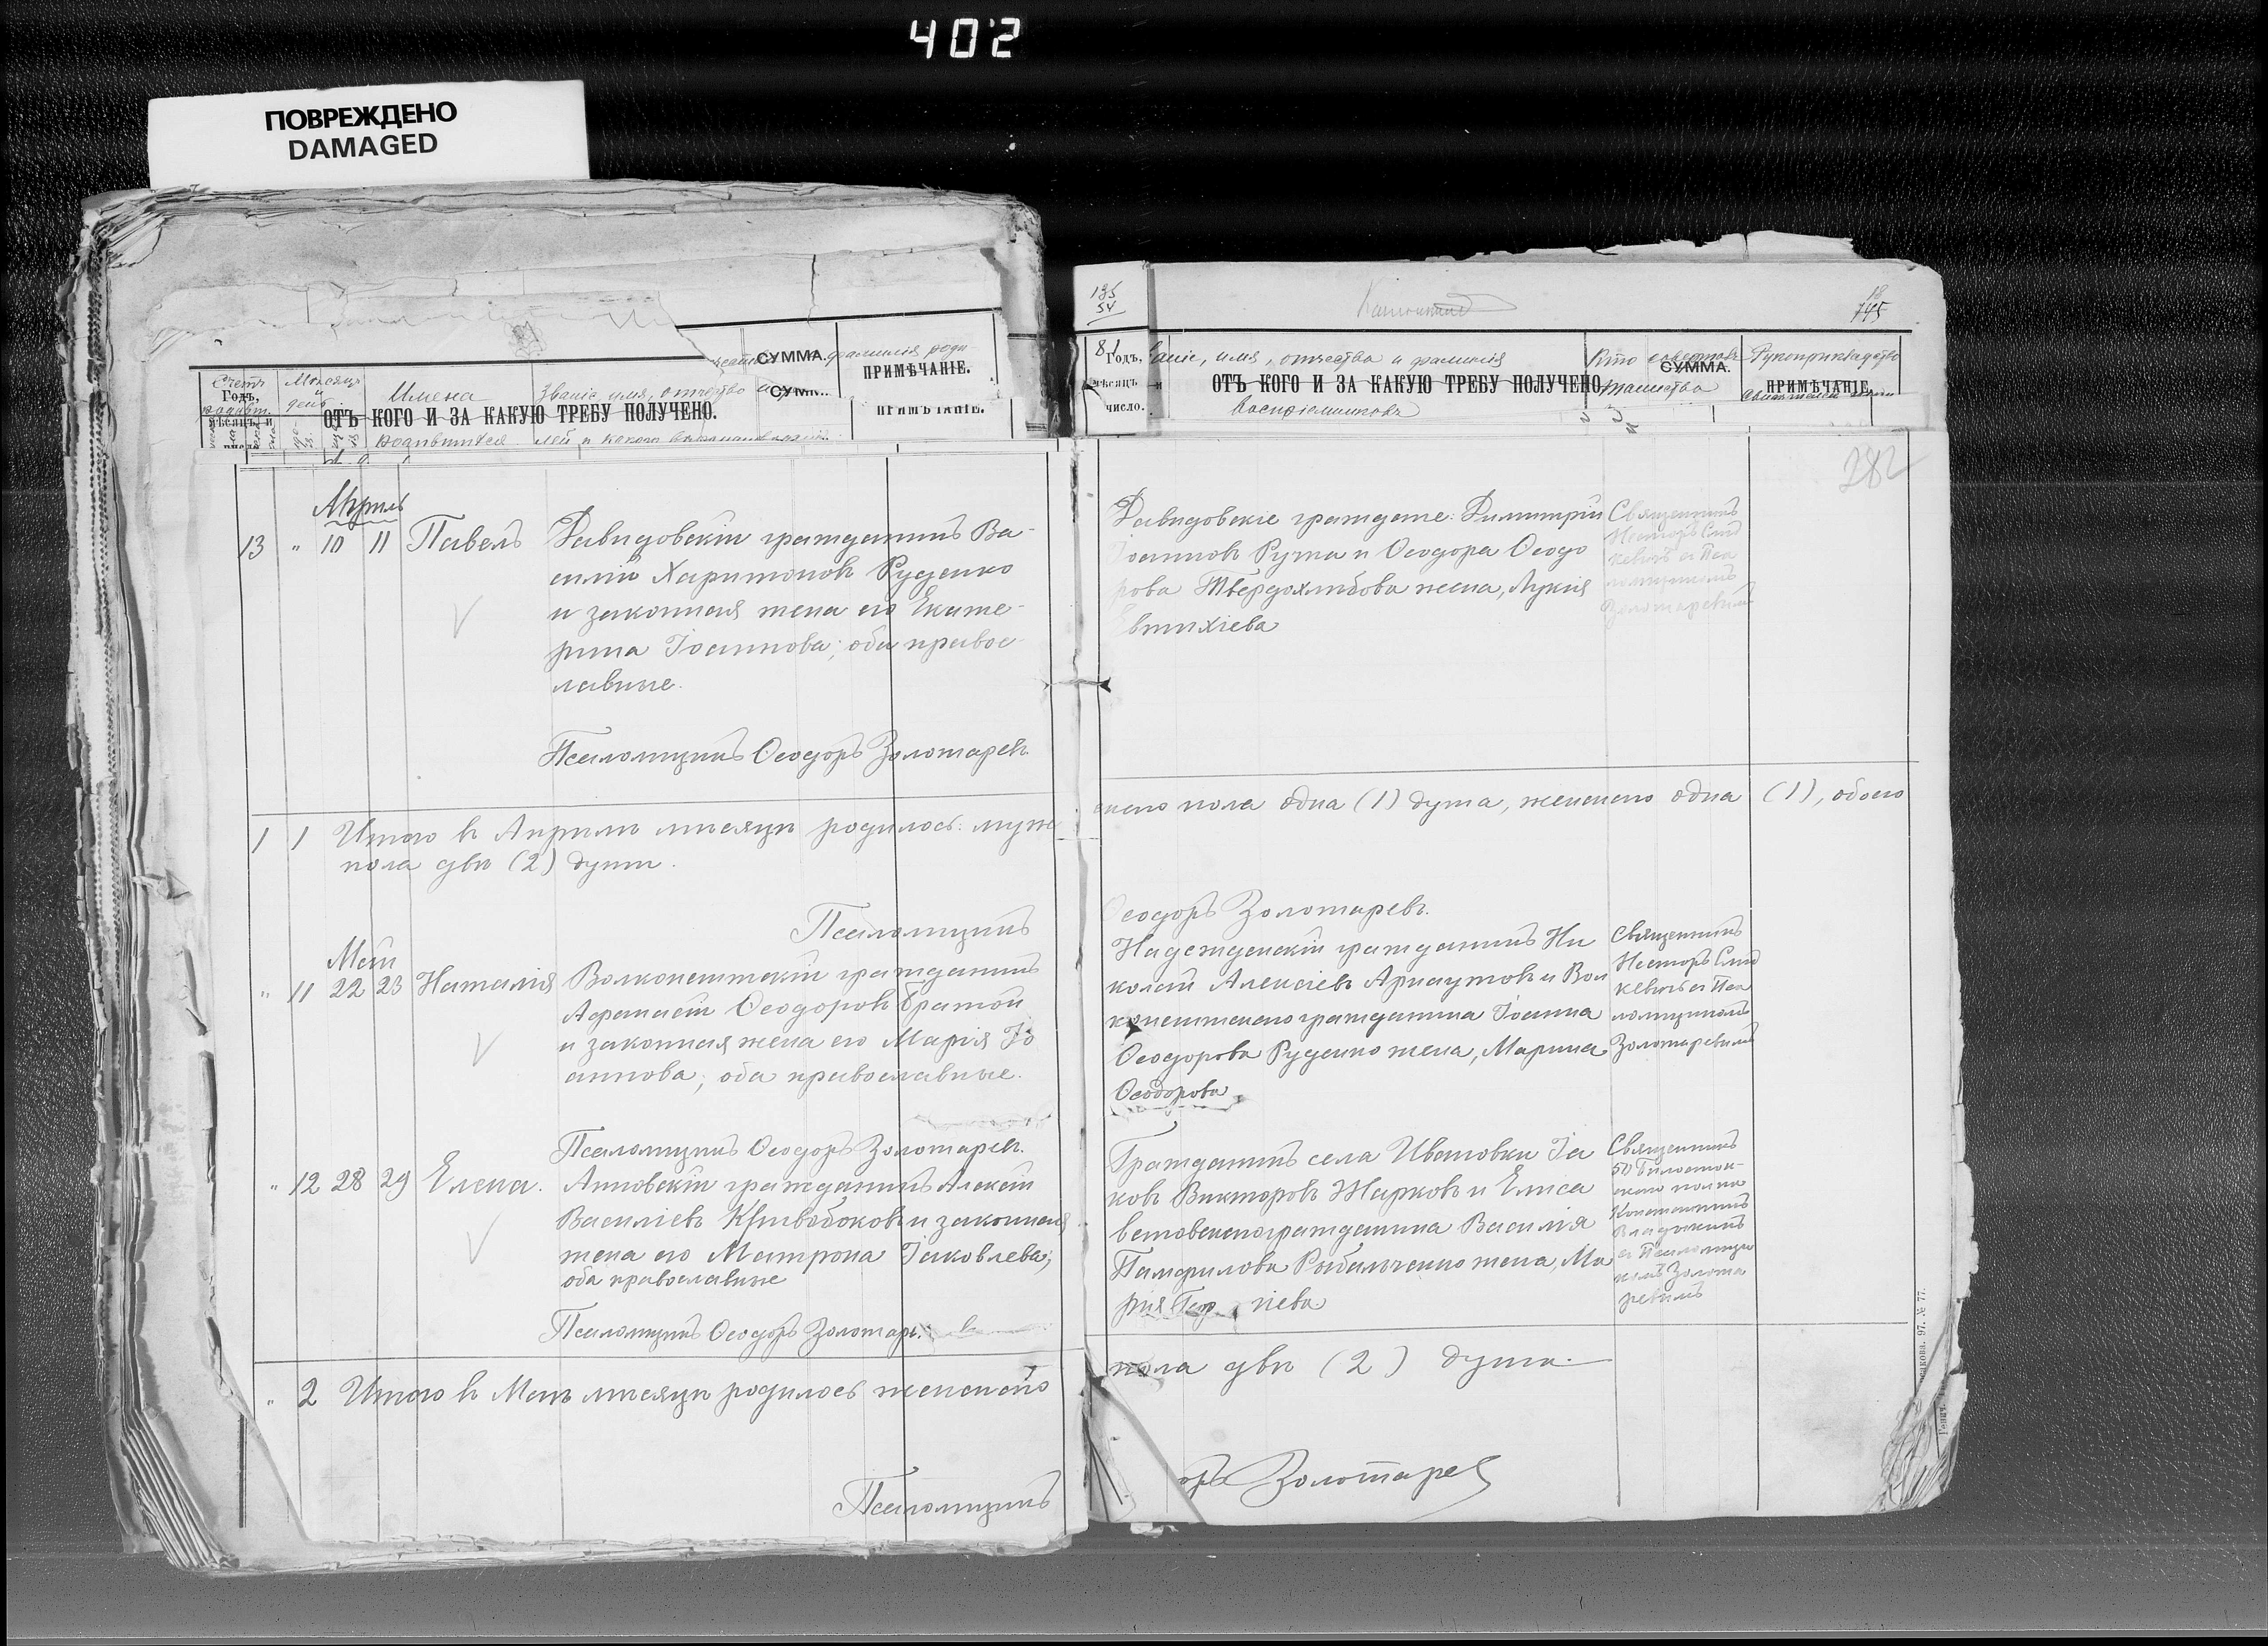 402
ПОВРЕЖДЕНО
DAMAGED
СУММА.
ПРИМѢЧАНІЕ.
Счетъ
Годъ,
мѣсяцъ и
Мѣсяцъ
и
день
Имена
Званіе, имя, отчество и
фамилія роди
ОТЪ КОГО И ЗА КАКУЮ ТРЕБУ ПОЛУЧЕНО.
родившихся
Апрѣль
13 " 10 11 Павелъ
Давидовскій гражданинъ Ва-
силій Харитоновъ Руденко
и законная жена его Екате-
рина Іоаннова; оба правос-
лавные.
Псаломщикъ Ѳеодоръ Золотаревъ
1 1 Итого въ Апрѣлѣ мѣсяцѣ родилось: муж
пола двѣ (2) души.
Псаломщикъ
Май
" 11 22 23 Наталія
Волконештскій гражданинъ
Афанасій Ѳеодоровъ Братой
и законная жена его Марія Іо
аннова; оба православные.
Псаломщикъ Ѳеодоръ Золотаревъ.
" 12 28 29 Елена.
Анновскій гражданинъ Алексій
Василіевъ Кривобоковъ и законная
жена его Матрона Іаковлева;
оба православные
Псаломщикъ Ѳеодоръ Золотар въ
" 2 Итого въ Маѣ мѣсяцѣ родилось женскаго
Псаломщикъ
135
54
745
Годъ,
мѣсяцъ и
число.
аніе, имя, отчество и фамилія
ОТЪ КОГО И ЗА КАКУЮ ТРЕБУ ПОЛУЧЕНО.
воспріемниковъ
Кто совершалъ
СУММА.
таинства
Рукоприкладство
ПРИМѢЧАНІЕ.
282
Давидовскіе граждане: Димитрій
Іоанновъ Ручка и Ѳеодора Ѳеодо
рова Твердохлѣбова жена, Лукія
Евтихіева
Священникъ
Несторъ
кевичъ съ Пса
ломщикомъ
Золотаревымъ
скаго пола одна (1) душа, женскаго одна (1), обоего
Ѳеодоръ Золотаревъ.
Надежденскій гражданинъ Ни
колай Алексіевъ Арнаутовъ и Вол
конештскаго гражданина Іоанна
Ѳеодорова Руденко жена, Марина
Ѳеодорова
Священникъ
Несторъ
кевичъ съ Пса
ломщикомъ
Золотаревымъ
Гражданинъ села Ивановки Іа
ковъ Викторовъ Жарковъ и Елиса
ветовскаго гражданина Василія
Памфилова Рыбальченко жена, Ма
рія Геор гіева
Священникъ
50 Бѣлосток-
скаго полка
Константинъ
съ Псаломщи
комъ Золота
ревымъ
пола двѣ (2) души.
оръ Золотарев
97. № 77.